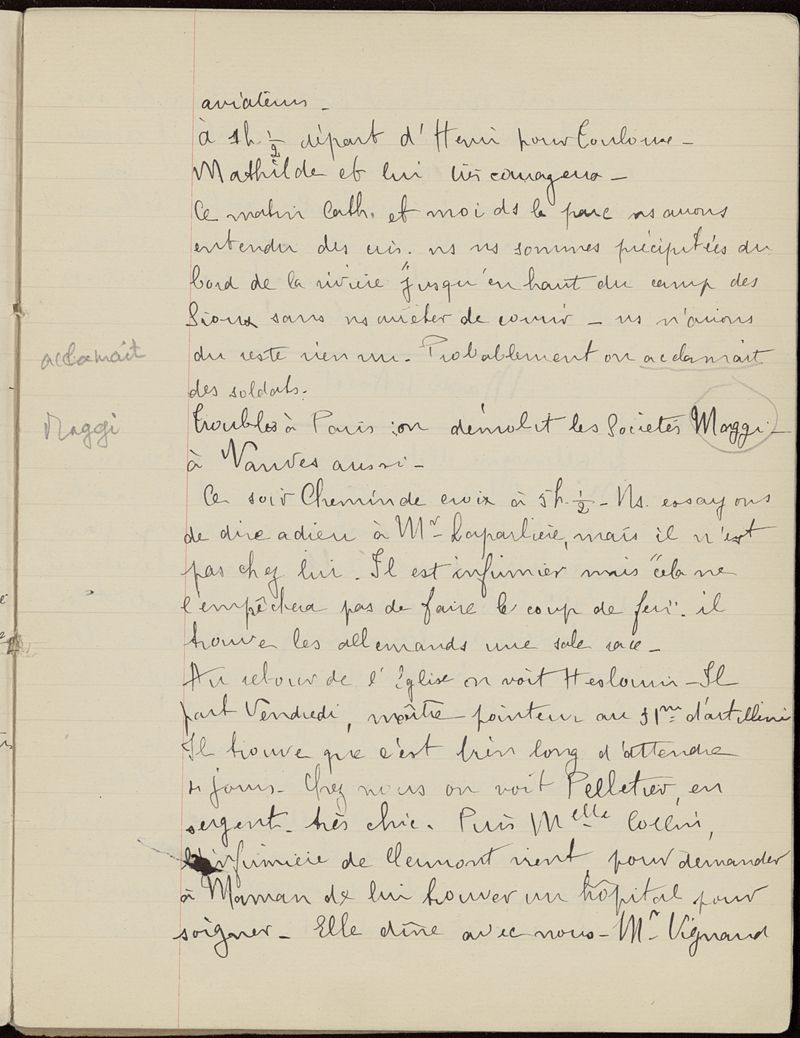 aviateurs –
à 1h ½ départ d'Henri pour Toulouse –
Mathilde et lui très courageux –
Ce matin Cath. et moi ds le parc ns avons
entendu des cris. ns ns sommes précipitées du
bord de la rivière "jusqu'en haut du camp des
Sioux sans ns arrêter de courir – ns n'avions
du reste rien vu. Probablement on acclamait
acclamait
des soldats.
Troubles à Paris : on démolit les Sociétés Maggi –
Maggi
à Vanves aussi –
Ce soir Chemin de croix à 5h. ½ – Ns. essayons
de dire adieu à Mr Laparlière, mais il n'est
pas chez lui. Il est infirmier mais "cela ne
l'empêchera pas de faire le coup de feu". il
trouve les allemands une sale race –
Au retour de l'Eglise on voit Heslouin – Il
part Vendredi, maître pointeur au 31me d'artillerie
Il trouve que c'est bien long d'attendre
4 jours – Chez nous on voit Pelletier, en
sergent – très chic. Puis Melle Collin,
l'infirmière de Clermont vient pour demander
à Maman de lui trouver un hôpital pour
soigner – Elle dîne avec nous – Mr Vignaud